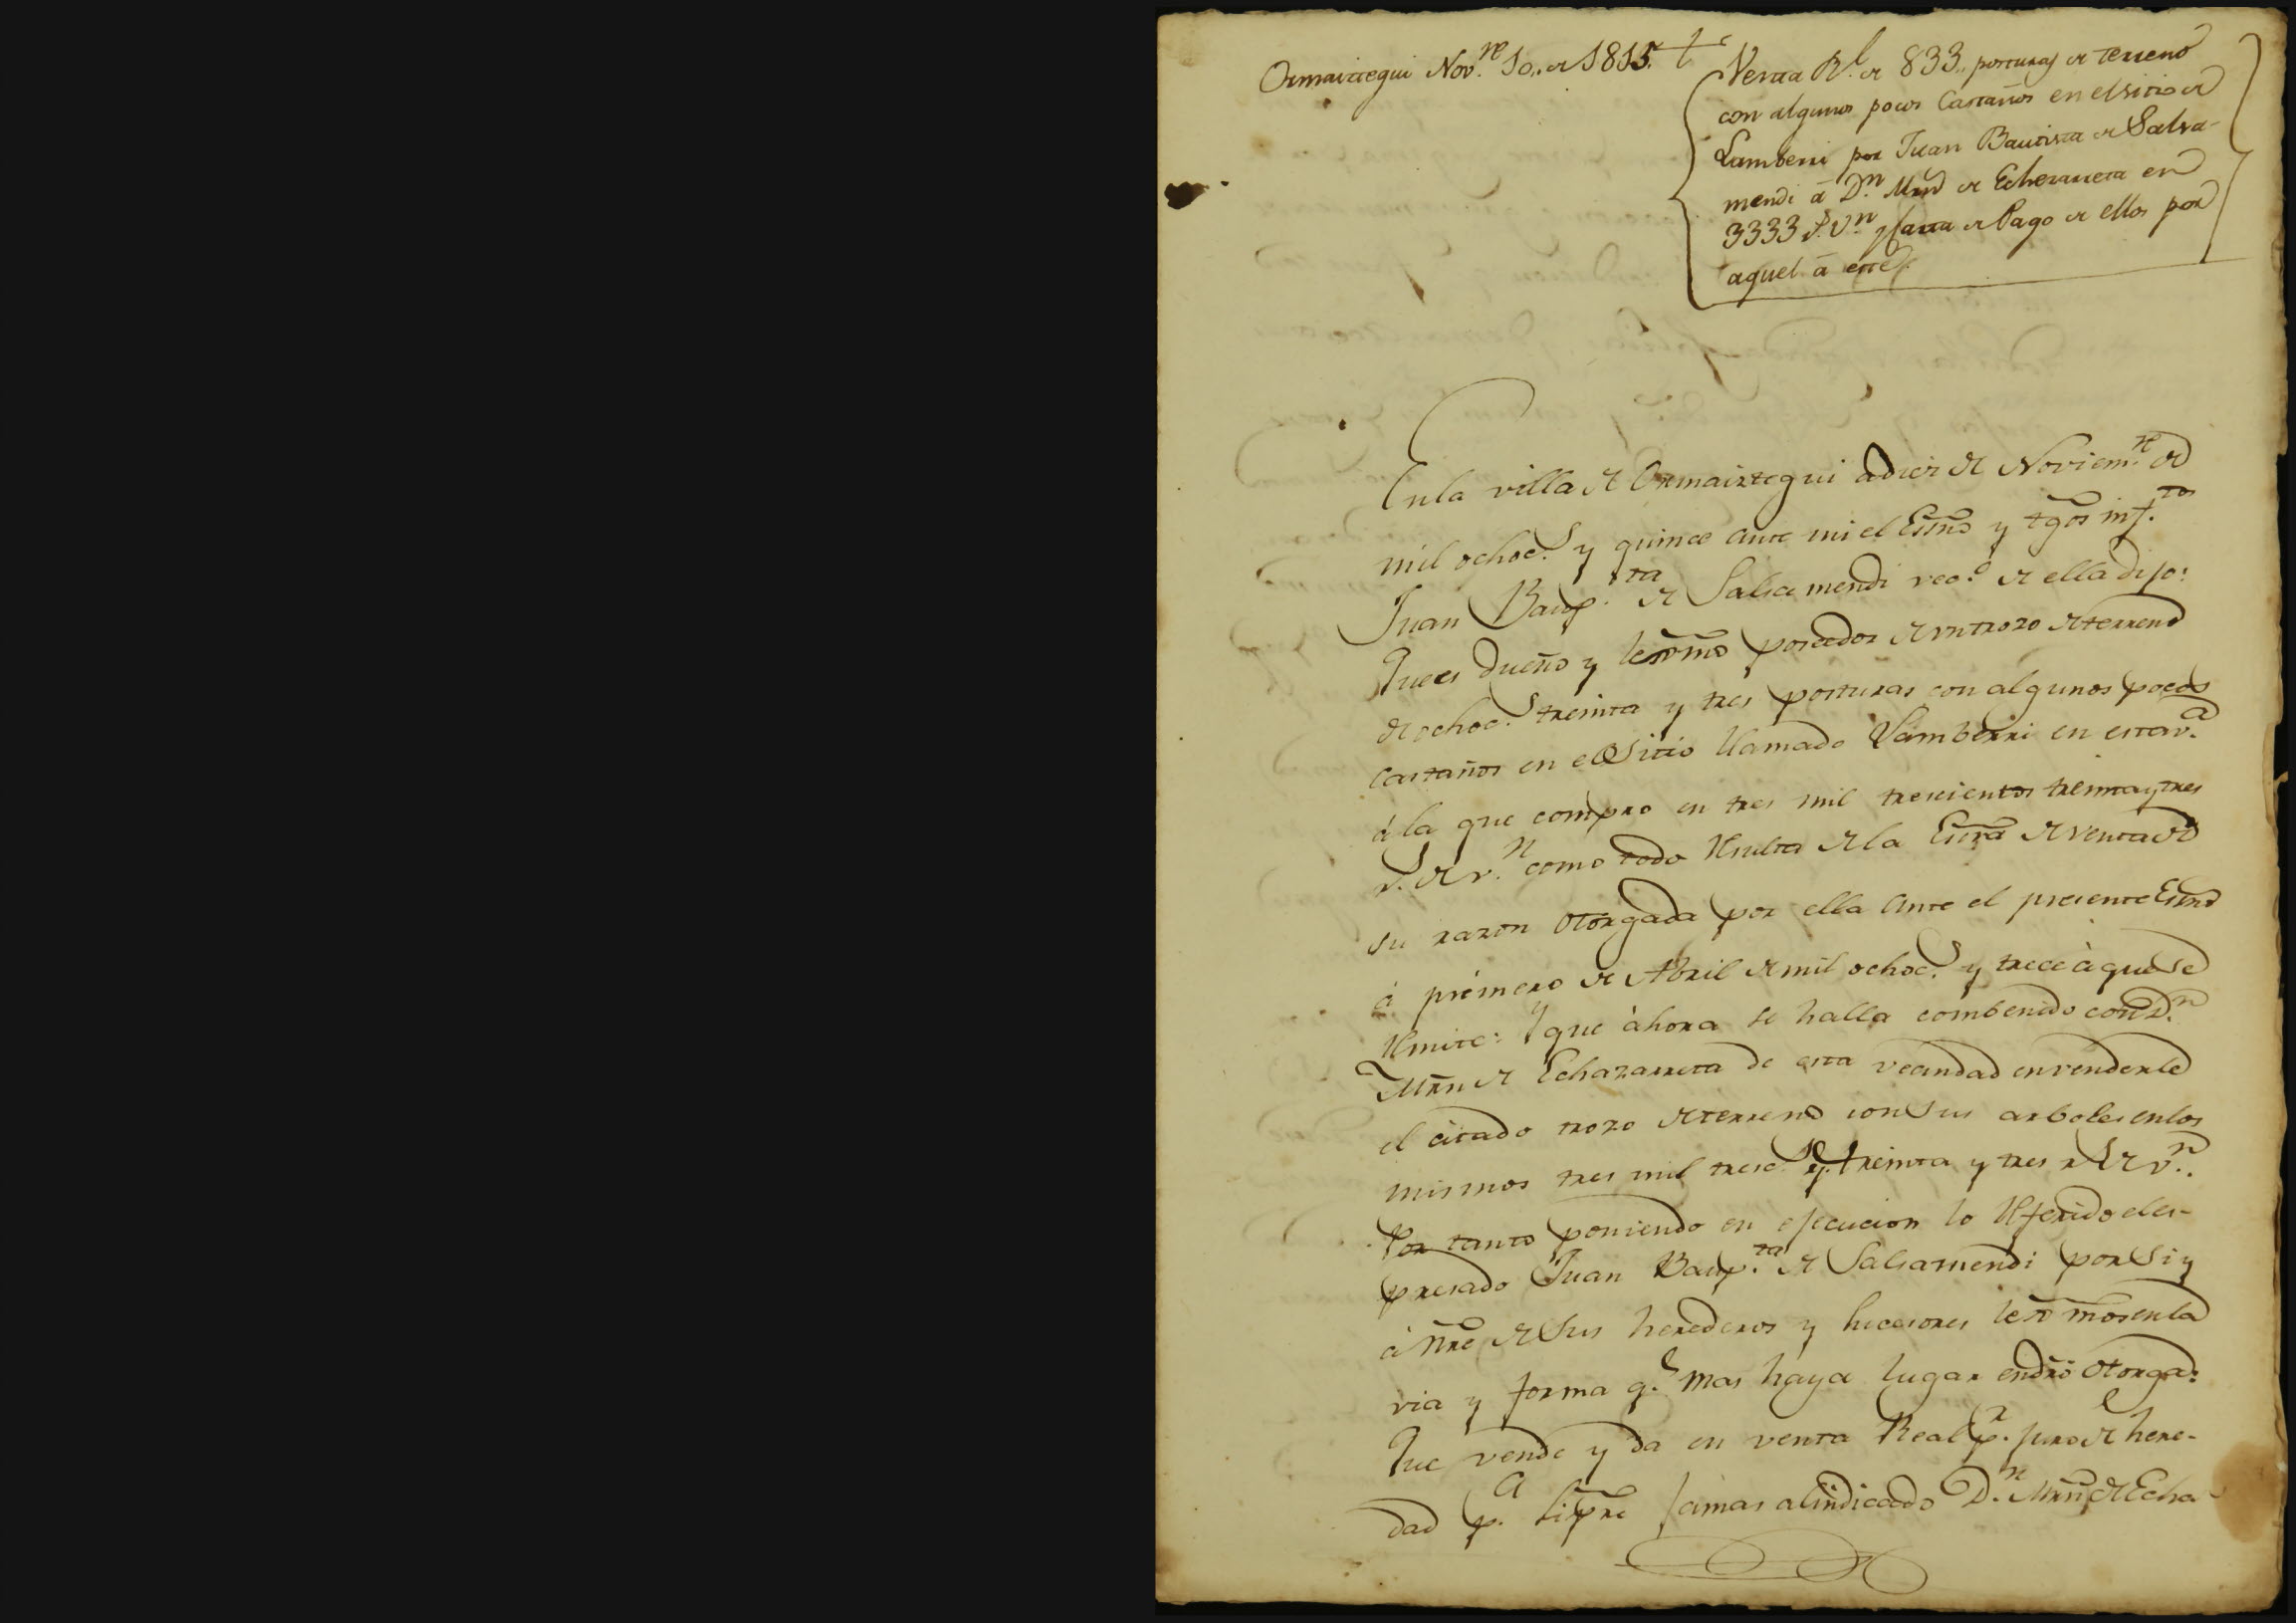 Ormaiztegui Nov.re 10,, de 1815.
Venta Rl. de 833,, posturas de terreno
con algunos pocos Castaños en el sitio de
Lamberri por Juan Bautista de Salsa-
mendi á Dn. Mrn de Echezarreta en
3333 rs. vn. y Carta de Pago de ellos por
aquel á este.
En la villa de Ormaiztegui a diez de Noviem.re de
mil ochoc.s y quince ante mi el Essno y tgos inf.tos
Juan Baup.ta de Salsamendi vec.o de ella dijo:
Que es dueño y lexmo poseedor de un trozo de terreno
de ochoc.s treinta y tres posturas con algunos pocos
castaños en el Sitio llamado Lamberri en esta v.a
á la que compro en tres mil trescientos treinta y tres
r.s de v.n como todo resulta de la Essra de venta de
su razon otorgada por ella ante el presente Essno
á primero de Abril de mil ochoc.s y trece à que se
remite: Y que àhora se halla combenido con D.n
Mrn de Echazarreta de esta vecindad en venderle
el citado trozo de terreno con sus arboles en los
mismos tres mil tresc.s y treinta y tres r.s de v.n.
Por tanto poniendo en ejecucion lo referido el es-
presado Juan Baup.ta de Salsamendi por Si y
à nre de Sus herederos y sucesores lexmos en la
via y forma q.e mas haya lugar en dro otorga:
Que vende y da en venta Real p.r juro de here-
dad p.a sipre jamas al indicado D.n Mrn de Echa-